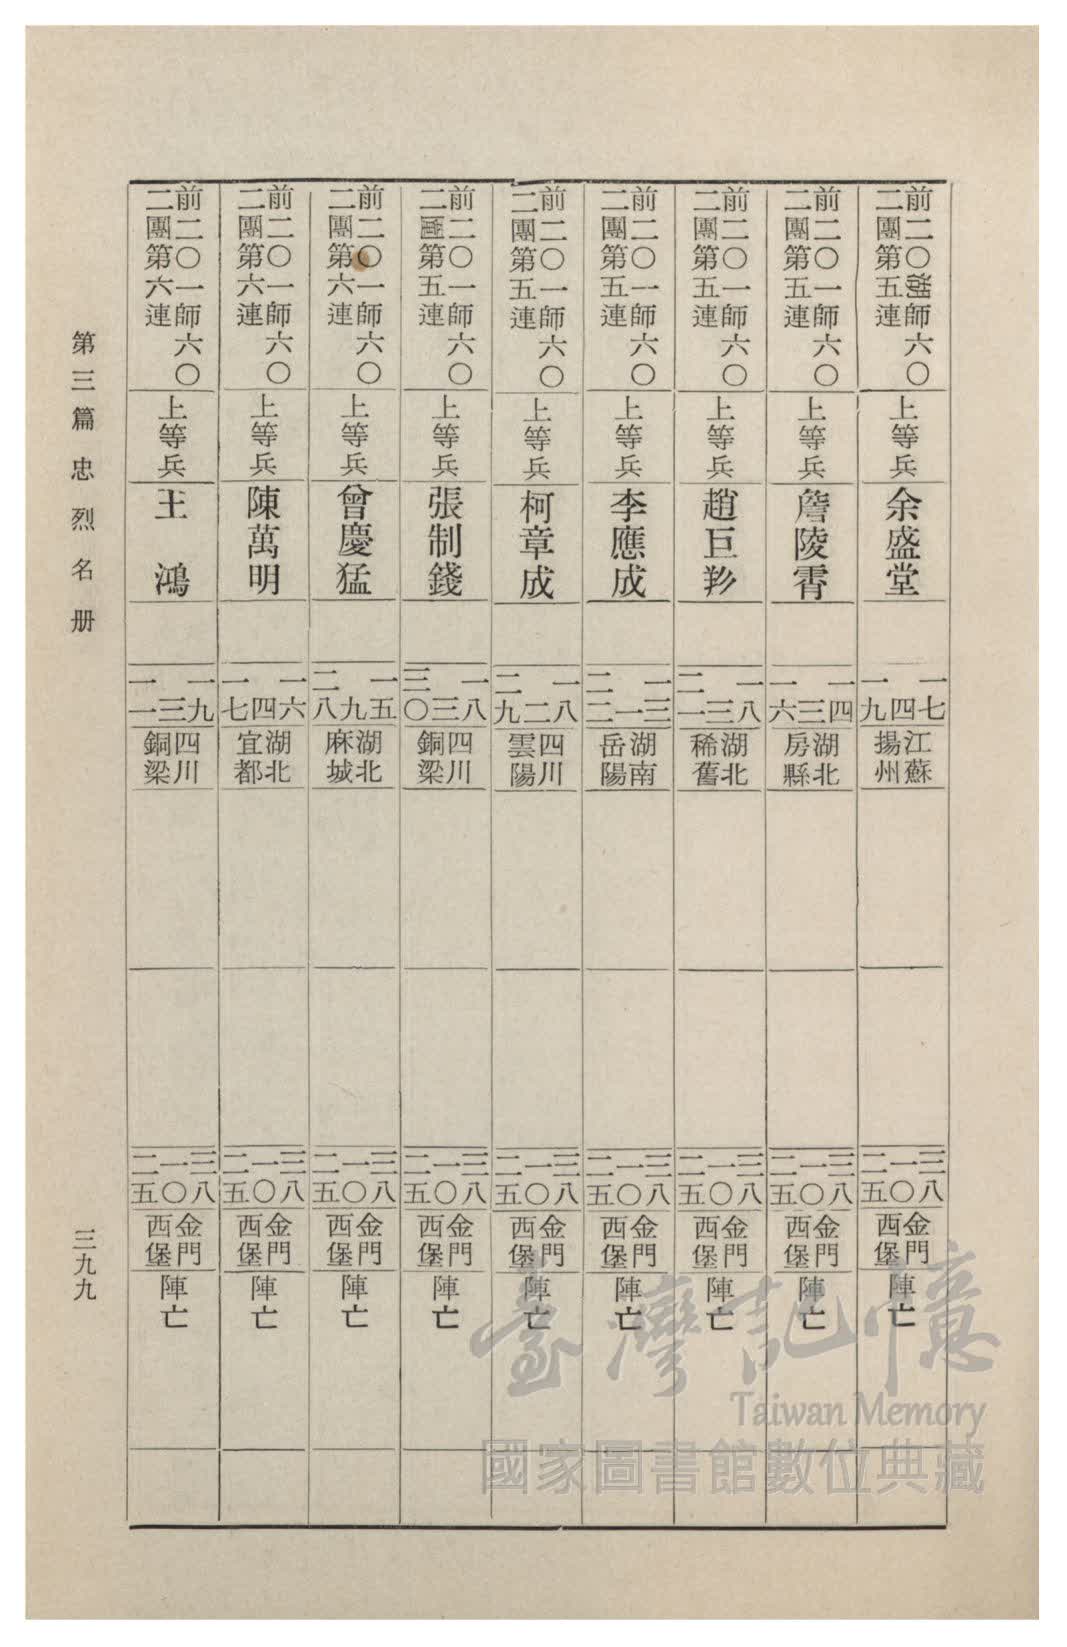 前二〇湖師六〇
二團第五連
上等兵
余盛堂
一七
四
一九
江蘇
揚州
三八
一〇
二五
金門
西堡
陣亡
前二〇一師六〇
二團第五連
上等兵
詹陵霄
一四
三
一六
湖北
房縣
三八
一〇
二五
金門
西堡
陣亡
前二〇一師六〇
二團第五連
上等兵
趙巨
一八
三
二一
湖北
稀舊
三八
一〇
二五
金門
西堡
陣亡
前二〇一師六〇
二團第五連
上等兵
李應成
一三
一
二二
湖南
岳陽
三八
一〇
二五
金門
西堡
陣亡
前二〇一師六〇
二團第五連
上等兵
柯章成
一八
二
二九
四川
雲陽
三八
一〇
二五
金門
西堡
陣亡
前二〇一師六〇
二第五連
上等兵
張制錢
一八
三
三〇
四川
銅梁
三八
一〇
二五
金門
西堡
陣亡
前二〇一師六〇
二團第六連
上等兵
曾慶猛
一五
九
二八
湖北
麻城
三八
一〇
二五
金門
西堡
陣亡
前二〇一師六〇
二團第六連
上等兵
陳萬明
一六
四
一七
湖北
宜都
三八
一〇
二五
金門
西堡
陣亡
前二〇一師六〇
二團第六連
上等兵
王 鴻
一九
三
一一
四川
銅梁
三八
一〇
二五
金門
西堡
陣亡
第三篇 忠烈名册
三九九
臺灣記憶
Taiwan Memory
國家圖書館數位典藏